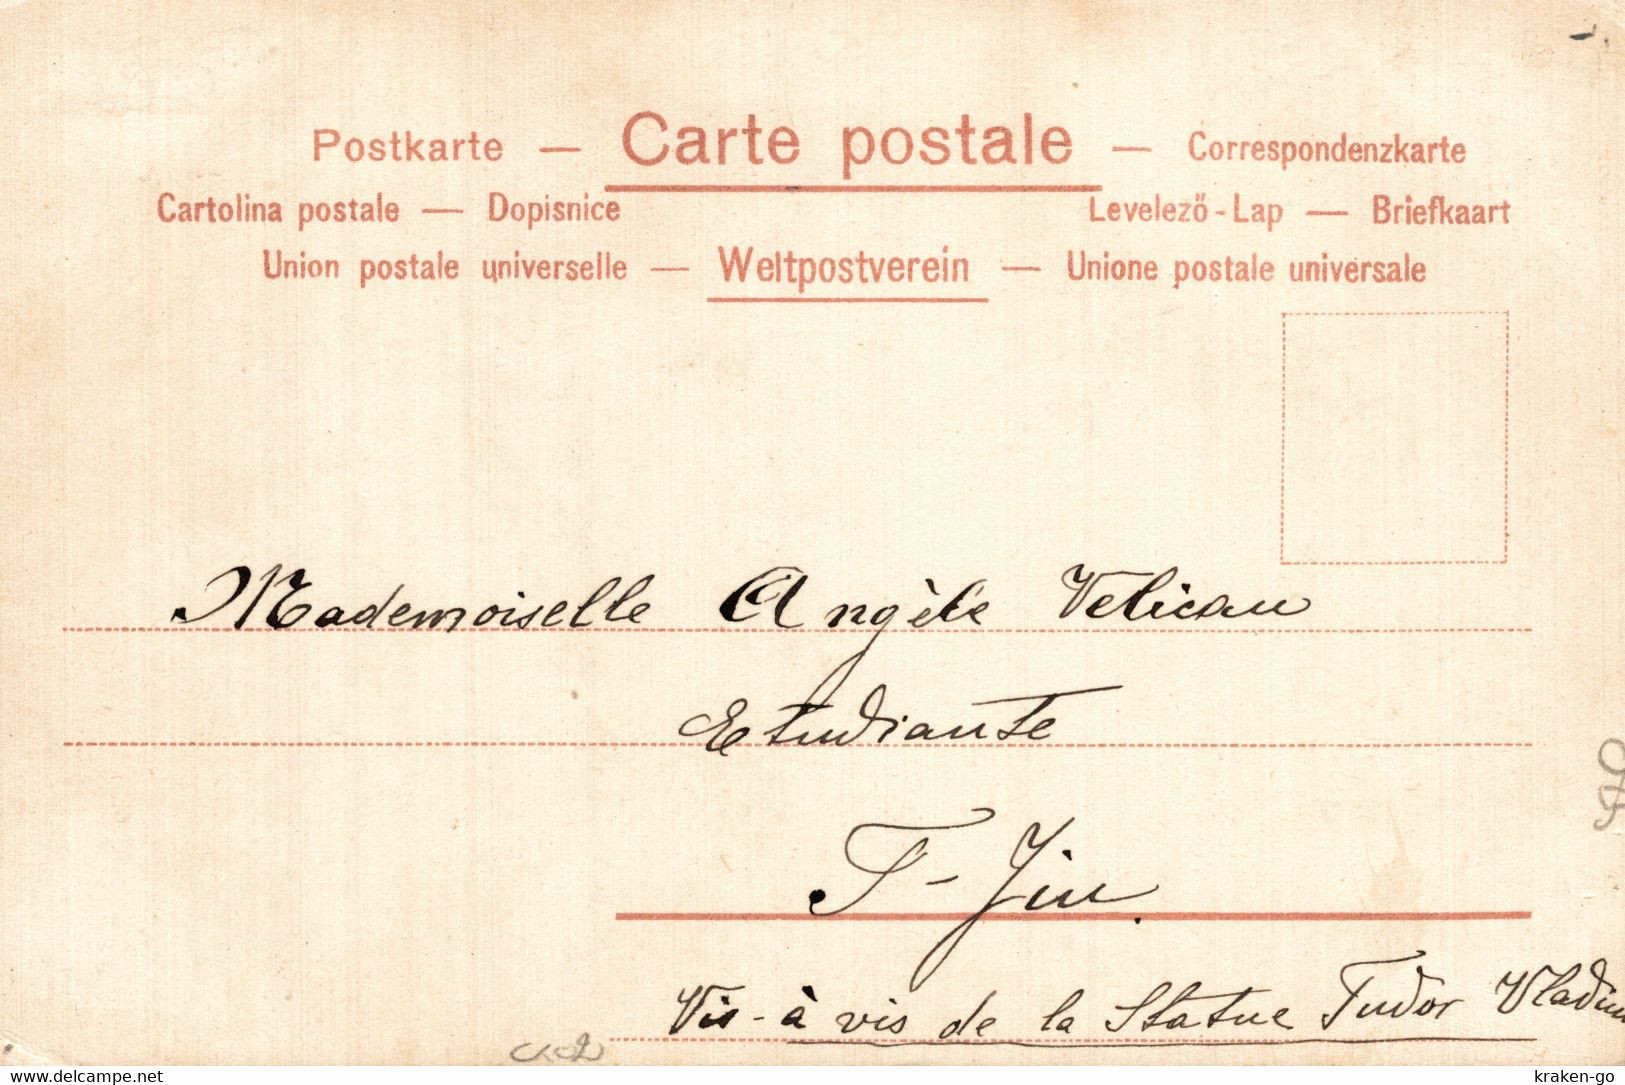 Postkarte — Carte postale — Correspondenzkarte
Cartolina postale — Dopisnice Levelező-Lap — Briefkaart
Union postale universelle — Weltpostverein — Unione postale universale
Mademoiselle Angèle Velican
Etudiante
T-Jiu.
Vis-à vis de la Statue Tudor Vladim
www.delcampe.net kraken-go